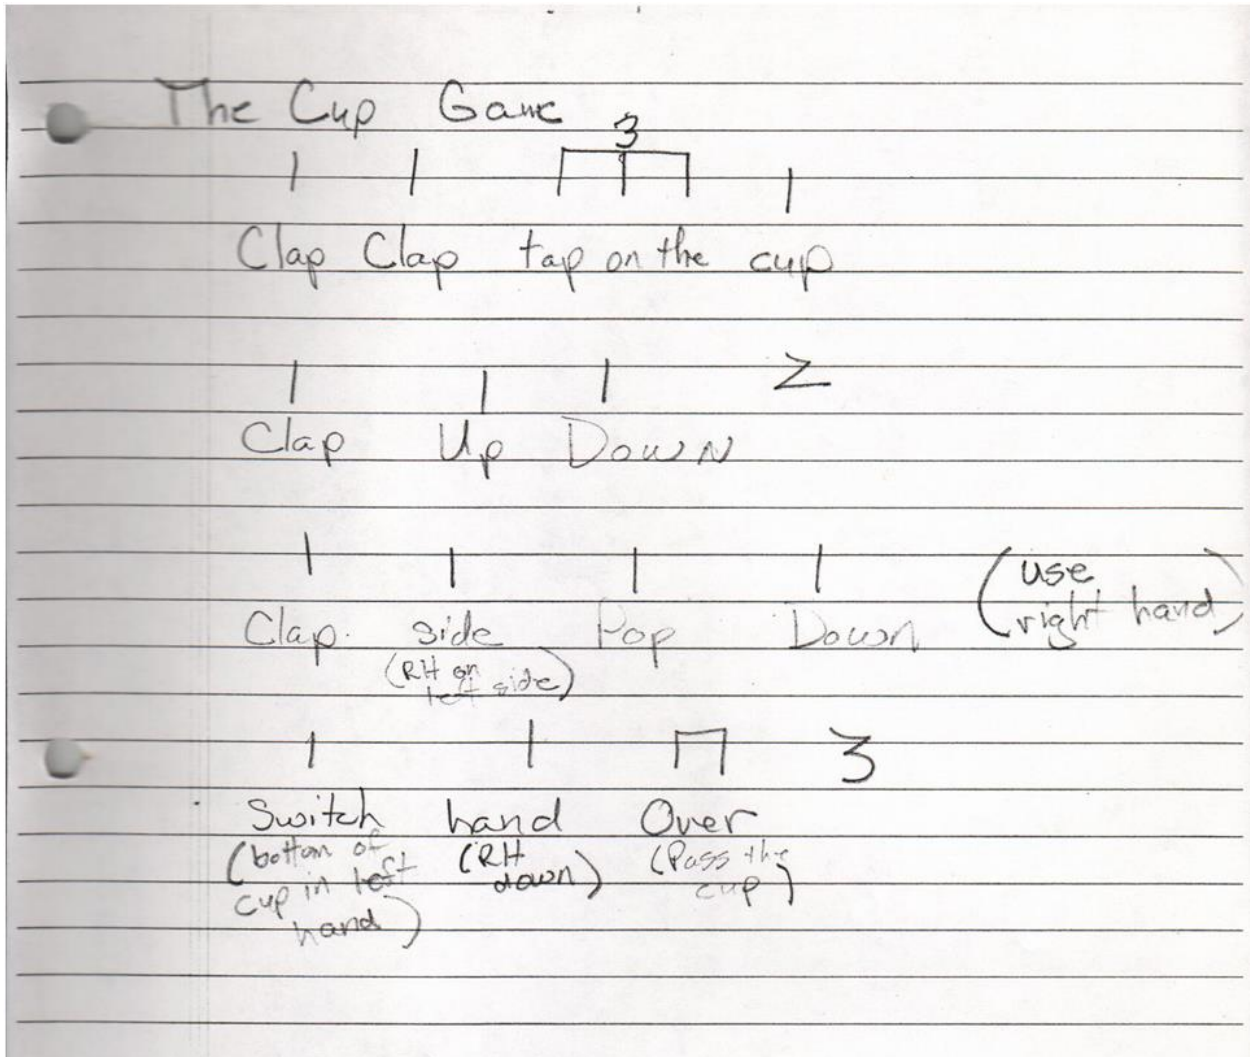 The Cup Game
3
Clap Clap tap on the cup
Clap Up Down
Clap side Pop Down (use right hand)
(RH on left side)
Switch hand Over
(bottom of cup in left hand) (RH down) (Pass the cup)